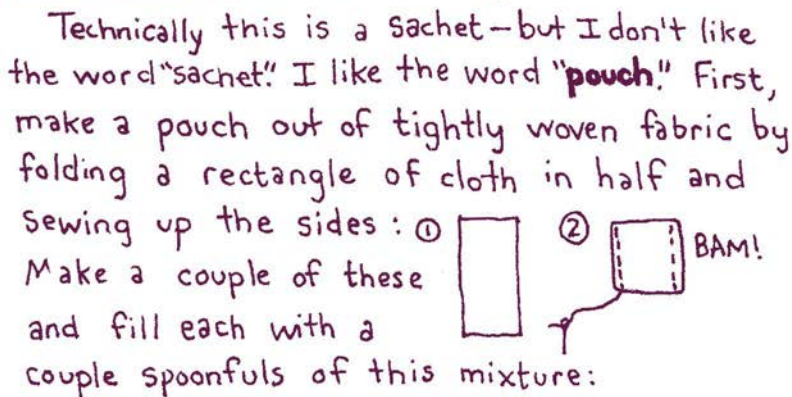 Technically this is a sachet–but I don't like
the word "sachet." I like the word "pouch." First,
make a pouch out of tightly woven fabric by
folding a rectangle of cloth in half and
sewing up the sides: ① ② BAM!
Make a couple of these
and fill each with a
couple spoonfuls of this mixture: